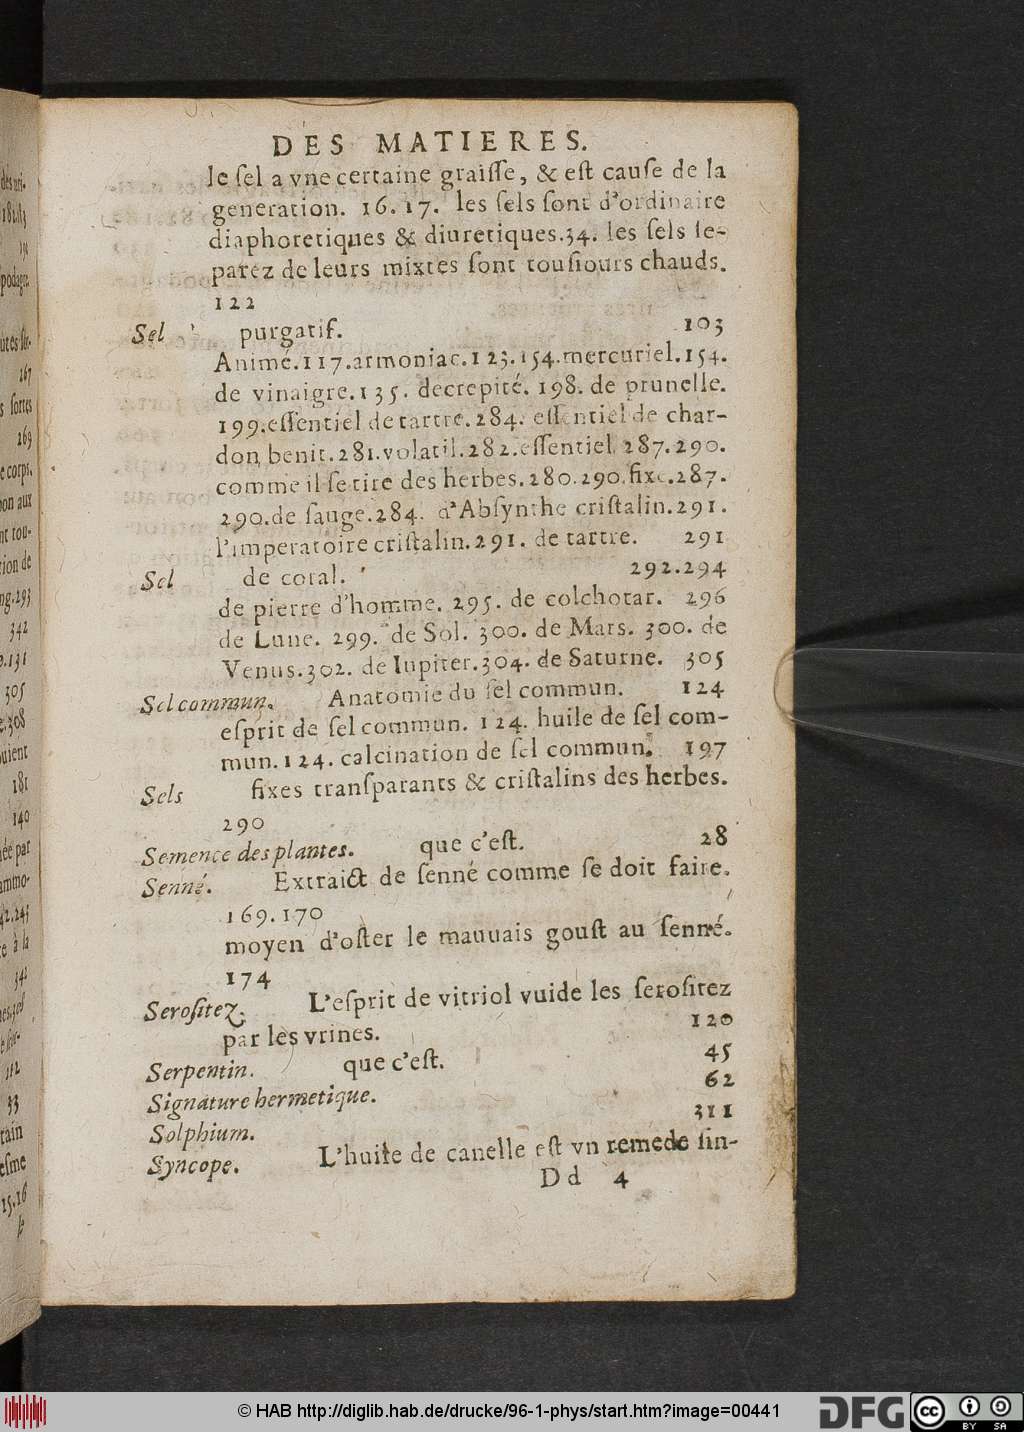 DES MATIERES.
le ſel a vne certaine graiſſe, & eſt cauſe de la
generation. 16. 17. les ſels ſont d'ordinaire
diaphoretiques & diuretiques. 34. les ſels ſe-
parez de leurs mixtes ſont touſiours chauds.
122
Sel purgatif. 103
Animé. 117. armoniac. 123. 154. mercuriel. 154.
de vinaigre. 135. decrepité. 198. de prunelle.
199. eſſentiel de tartre. 284. eſſentiel de char-
don benit. 281. volatil. 282. eſſentiel 287. 290.
comme il ſe tire des herbes. 280. 290. fixe. 287.
290. de ſauge. 284. d'Abſynthe criſtalin. 291.
l'imperatoire criſtalin. 291. de tartre. 291
Sel de coral. 292. 294
de pierre d'homme. 295. de colchotar. 296
de Lune. 299. de Sol. 300. de Mars. 300. de
Venus. 302. de Iupiter. 304. de Saturne. 305
Sel commun. Anatomie du ſel commun. 124
eſprit de ſel commun. 124. huile de ſel com-
mun. 124. calcination de ſel commun. 197
Sels fixes tranſparants & criſtalins des herbes.
290
Semence des plantes. que c'eſt. 28
Senné. Extraict de ſenné comme ſe doit faire.
169. 170
moyen d'oſter le mauuais gouſt au ſenné.
174
Seroſitez. L'eſprit de vitriol vuide les ſeroſitez
par les vrines. 120
Serpentin. que c'eſt. 45
Signature hermetique. 62
Solphium. 311
Syncope. L'huile de canelle eſt vn remede ſin-
Dd 4
© HAB http://diglib.hab.de/drucke/96-1-phys/start.htm?image=00441
DFG
cc
BY SA